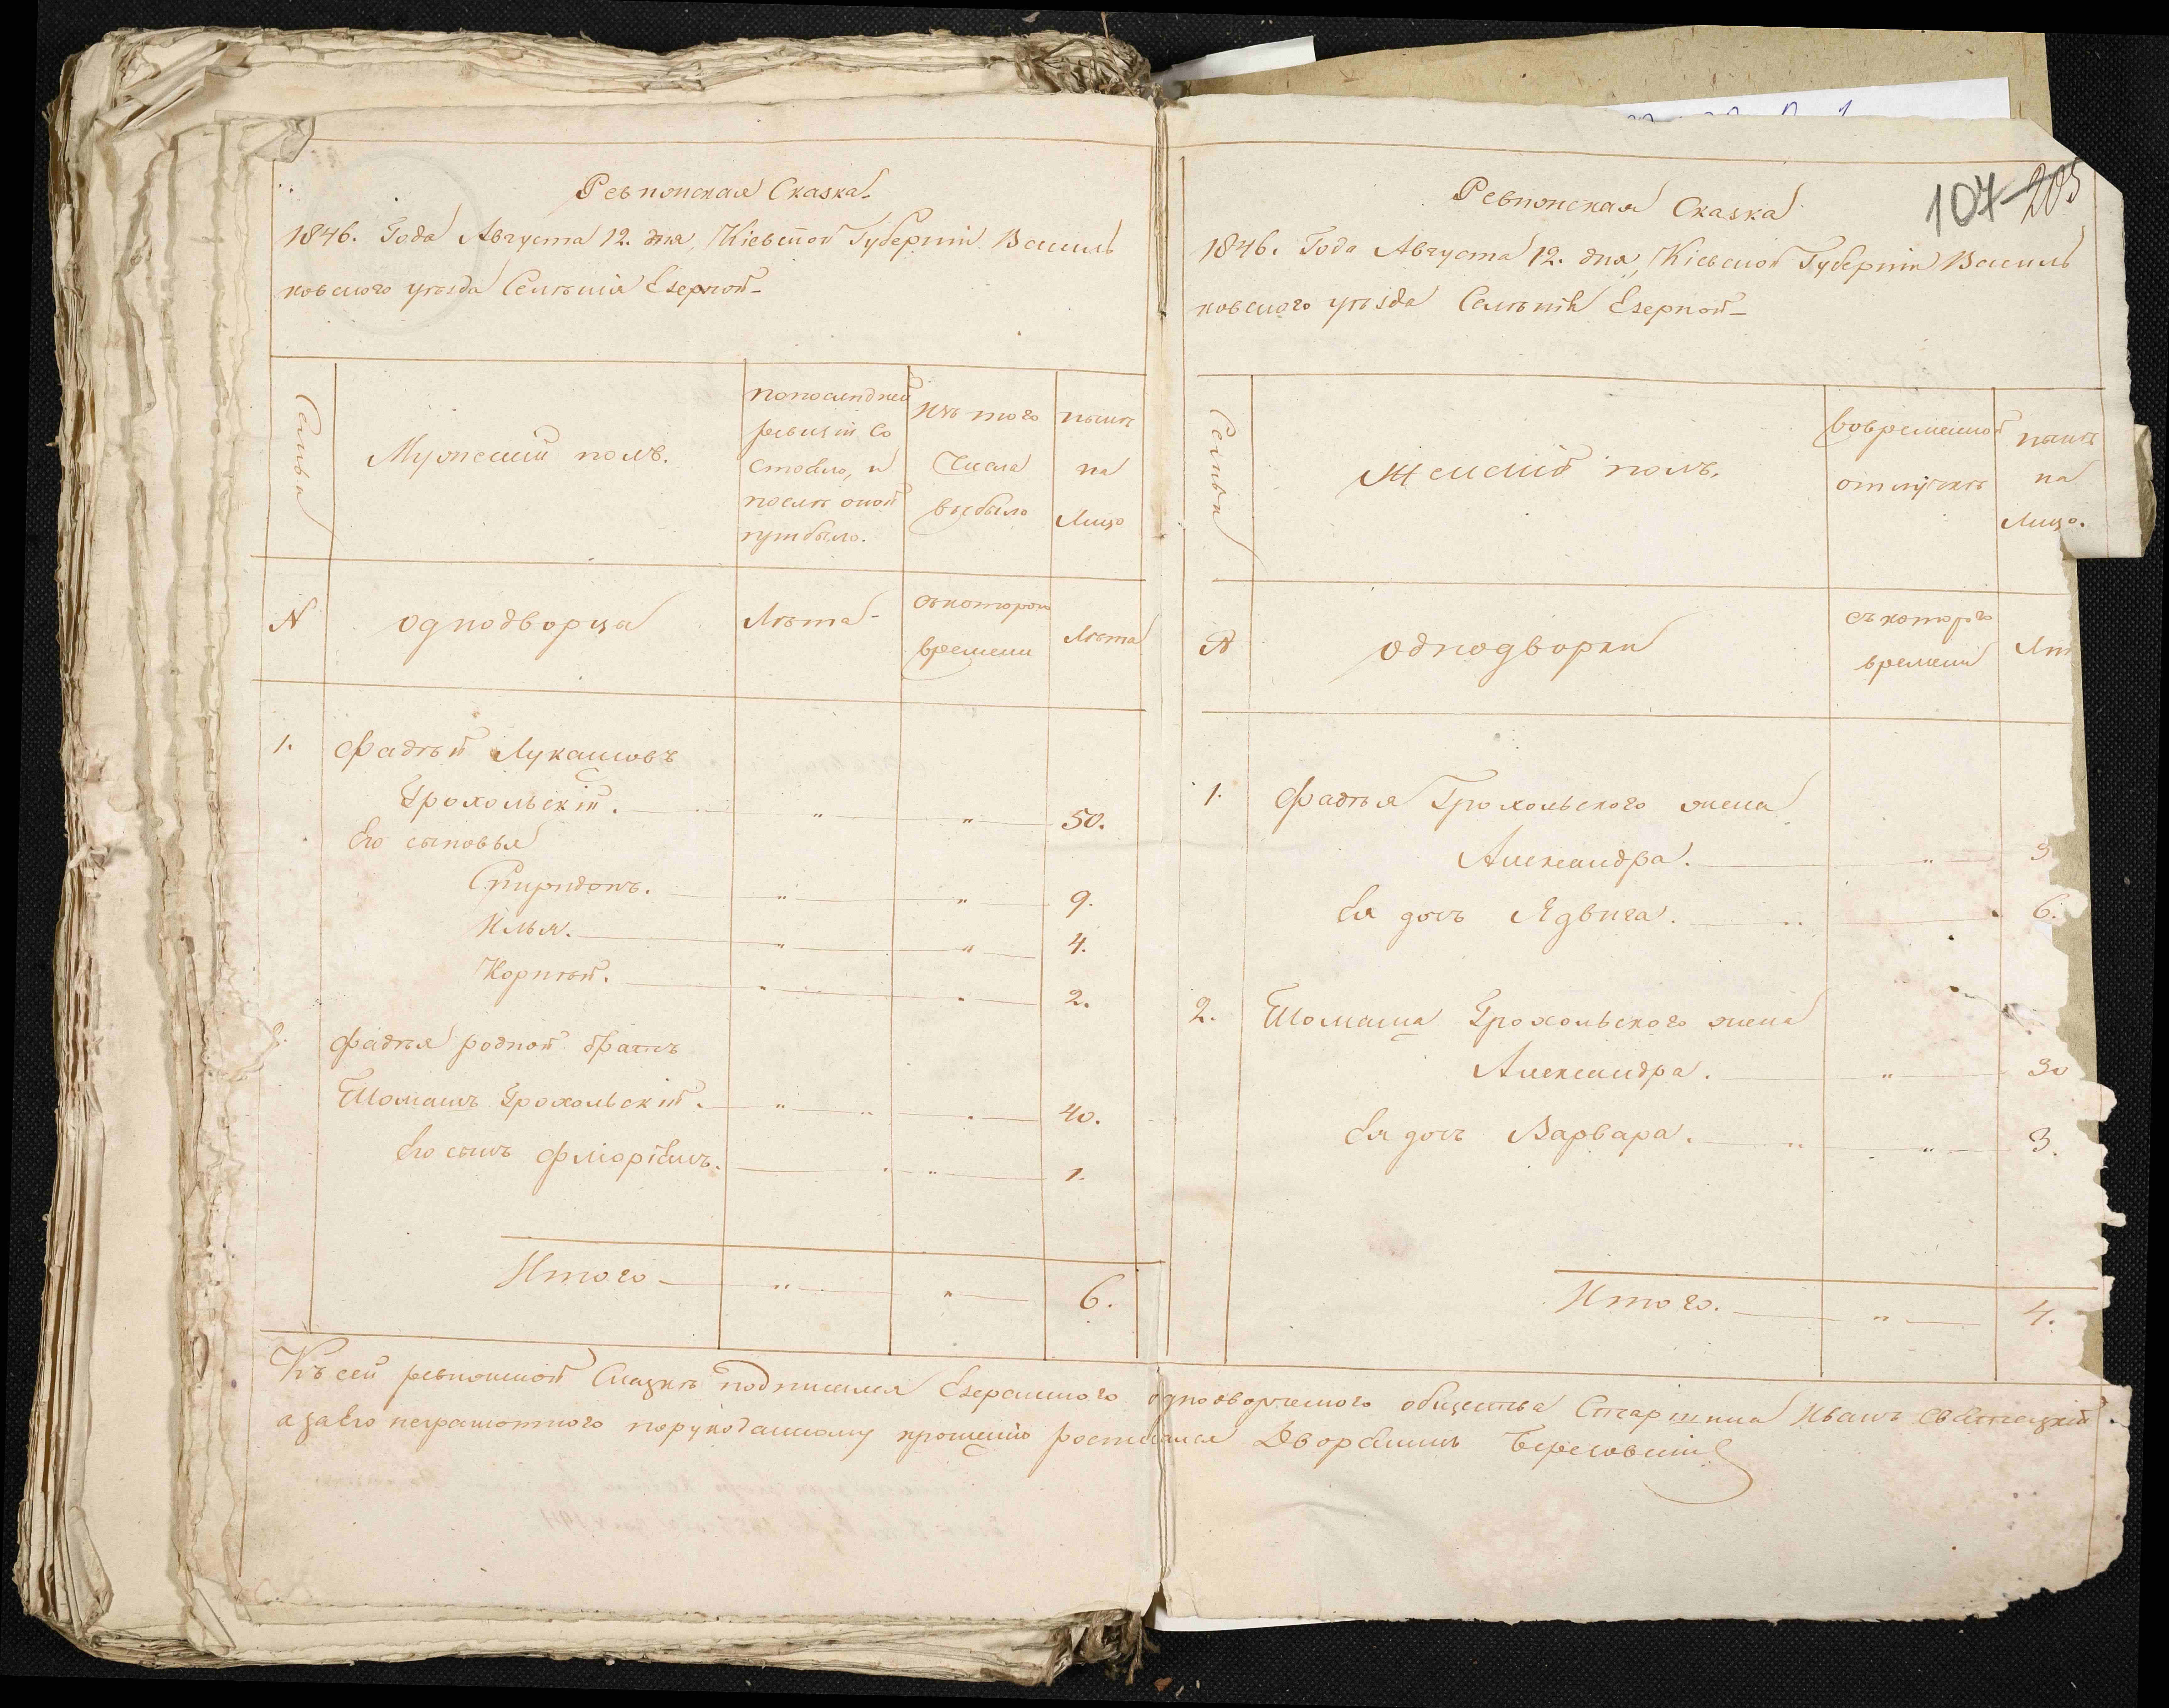 Ревизская Сказка
1846. Года Августа 12. дня, Кіевской Губерніи Василь
ковского уѣзда Селѣнія Езерной
Семьи
Мужеский полъ.
попоследней
ревизіи Со
стояло, и
послѣ оной
прибыло.
изъ того
Числа
выбыло
нынѣ
на
Лицо
N
однодворца
Лѣта
съкоторого
времени
Лѣта
1. Фадѣй Лукашовъ
Грохольскій. " " 50.
Его сыновья
Спиридонъ. " " 9.
Илья. " " 4.
Корнѣй. " " 2.
2. Фадѣя родной братъ
Томашъ Грохольскій. " " 40.
Его сынъ Флоріянъ. " " 1.
Итого " " 6.
107 205
Ревизская Сказка
1846. Года Августа 12. дня, Кіевской Губерніи Василь
ковского уѣзда Селѣнія Езерной
Семьи
Женский полъ.
вовременной
отлучкѣ
нынѣ
на
Лицо.
N
однодворки
съ которого
времени
1. Фадѣя Грохольского жена
Александра. " 3
Ея дочь Ядвига. " 6.
2. Томаша Грохольского жена
Александра. " 30
Ея дочь Варвара. " 3.
Итого. " 4.
Къ сей ревизской Сказкѣ подписался Езерянского однодворческого общества Старшина Иванъ Святецкій
а заЕго неграмотного порукоданному прошенію росписался Дворянинъ Березовский